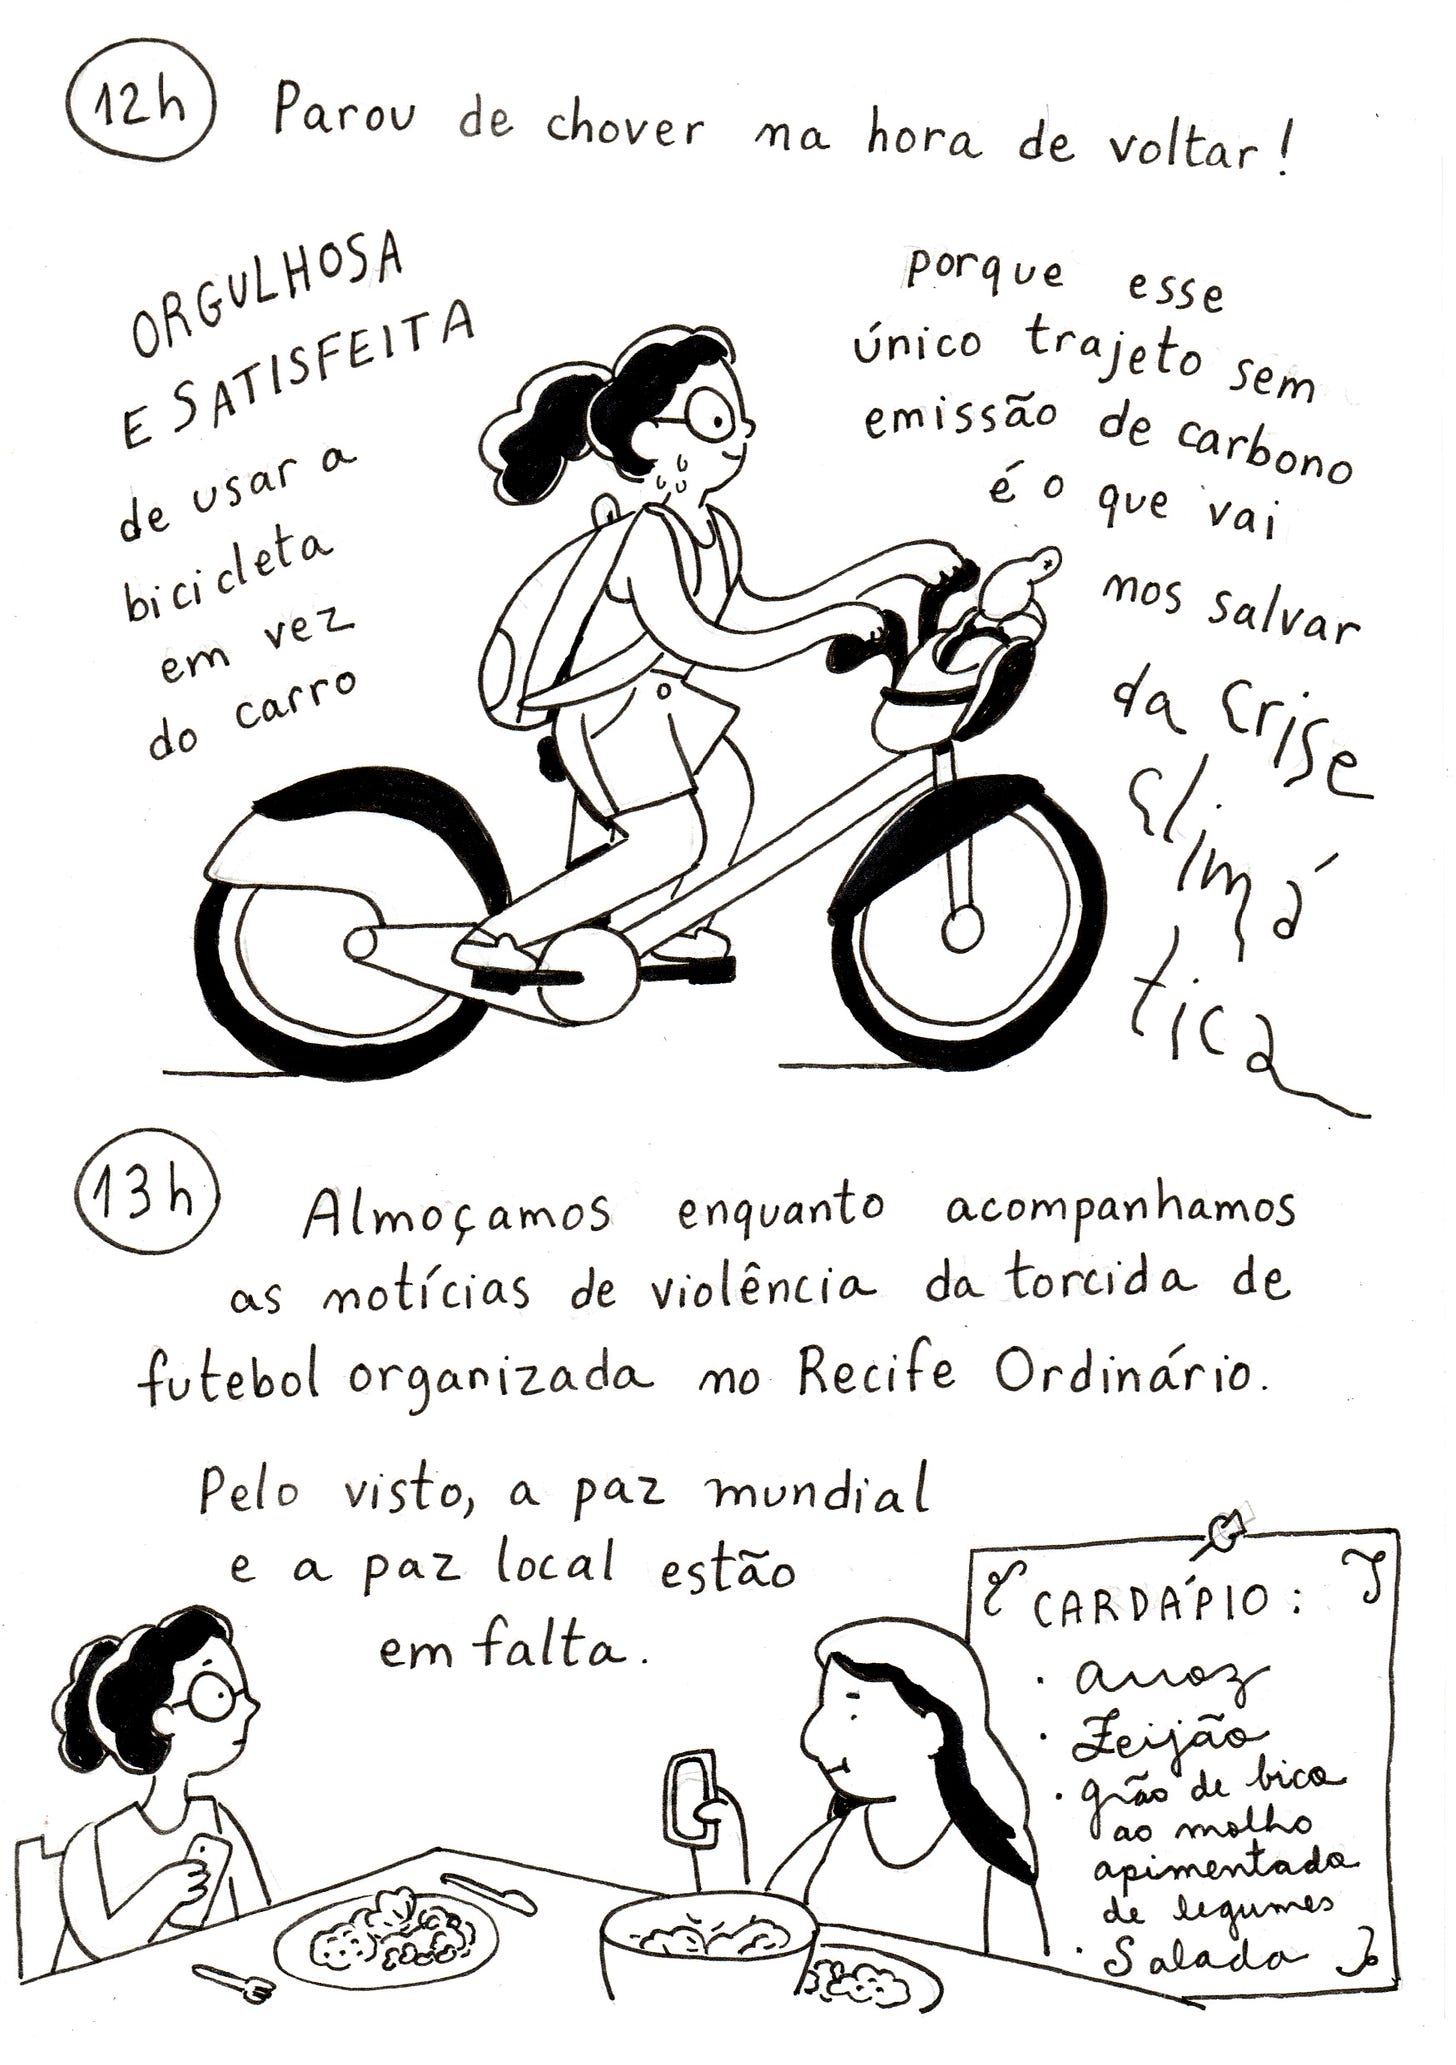 12h Parou de chover na hora de voltar!
ORGULHOSA
E SATISFEITA
de usar a
bicicleta
em vez
do carro
porque esse
único trajeto sem
emissão de carbono
é o que vai
nos salvar
da Crise
Climá
tica
13h Almoçamos enquanto acompanhamos
as notícias de violência da torcida de
futebol organizada no Recife Ordinário.
Pelo visto, a paz mundial
e a paz local estão
em falta.
CARDÁPIO:
· arroz
· Feijão
· grão de bico
ao molho
apimentado
de legumes
· Salada